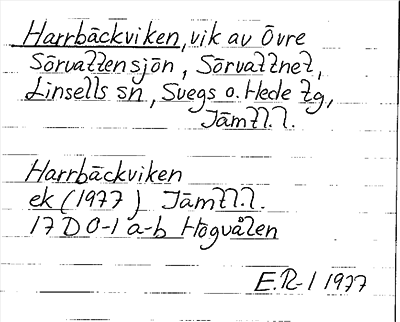 Harrbäckviken, vik av Övre
Sörvattensjön, Sörvattnet,
Linsells sn, Svegs o. Hede tg,
Jämtl.l.
Harrbäckviken
ek (1977) Jämtl.l.
17 D 0-1 a-b Högvålen
E.R-l 1977